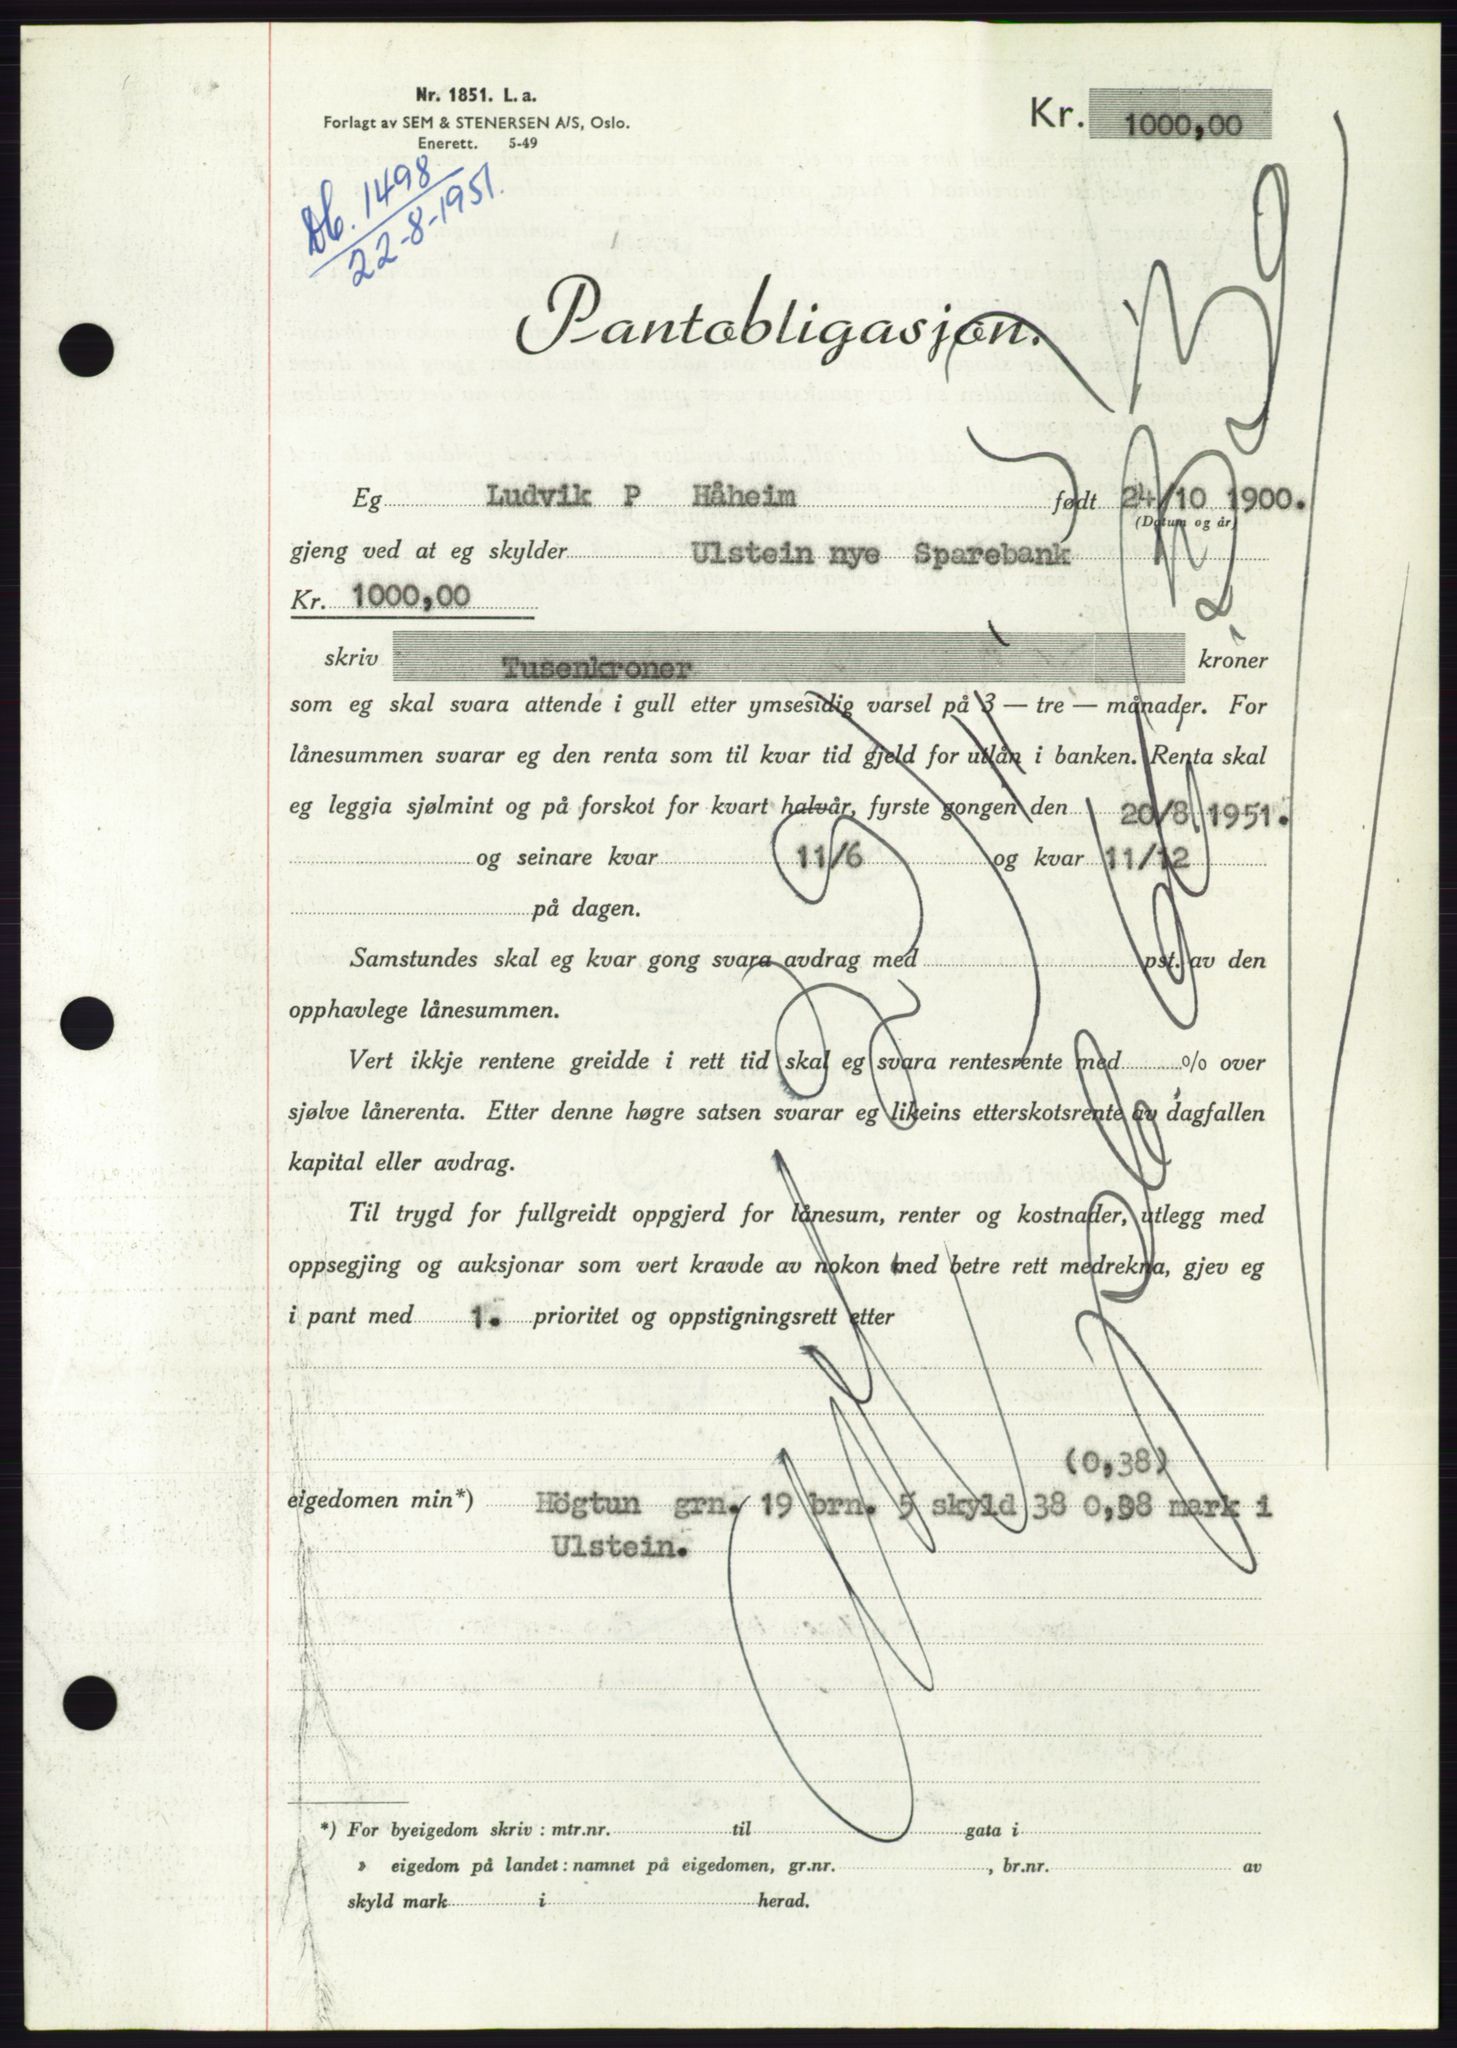 Nr. 1851. L. a.
Forlagt av SEM & STENERSEN A/S, Oslo.
Enerett. 5-49
Kr. 1000,00
Db. 1498
22-8-1951.
Pantobligasjon.
Eg Ludvik P Håheim født 24/10 1900.
(Datum og år)
gjeng ved at eg skylder Ulstein nye Sparebank
Kr. 1000,00
skriv Tusenkroner kroner
som eg skal svara attende i gull etter ymsesidig varsel på 3 — tre — månader. For
lånesummen svarar eg den renta som til kvar tid gjeld for utlån i banken. Renta skal
eg leggja sjølmint og på forskot for kvart halvår, fyrste gongen den 20/8. 1951.
og seinare kvar 11/6 og kvar 11/12
på dagen.
Samstundes skal eg kvar gong svara avdrag med pst. av den
opphavlege lånesummen.
Vert ikkje rentene greidde i rett tid skal eg svara rentesrente med % over
sjølve lånerenta. Etter denne høgre satsen svarar eg likeins etterskotsrente av dagfallen
kapital eller avdrag.
Til trygd for fullgreidt oppgjerd for lånesum, renter og kostnader, utlegg med
oppsegjing og auksjonar som vert kravde av nokon med betre rett medrekna, gjev eg
i pant med 1. prioritet og oppstigningsrett etter
(0,38)
eigedomen min*) Högtun grn. 19 brn. 5 skyld 38 0,38 mark i
Ulstein.
*) For byeigedom skriv : mtr.nr. til gata i
» eigedom på landet : namnet på eigedomen, gr.nr. , br.nr. av
skyld mark i herad.